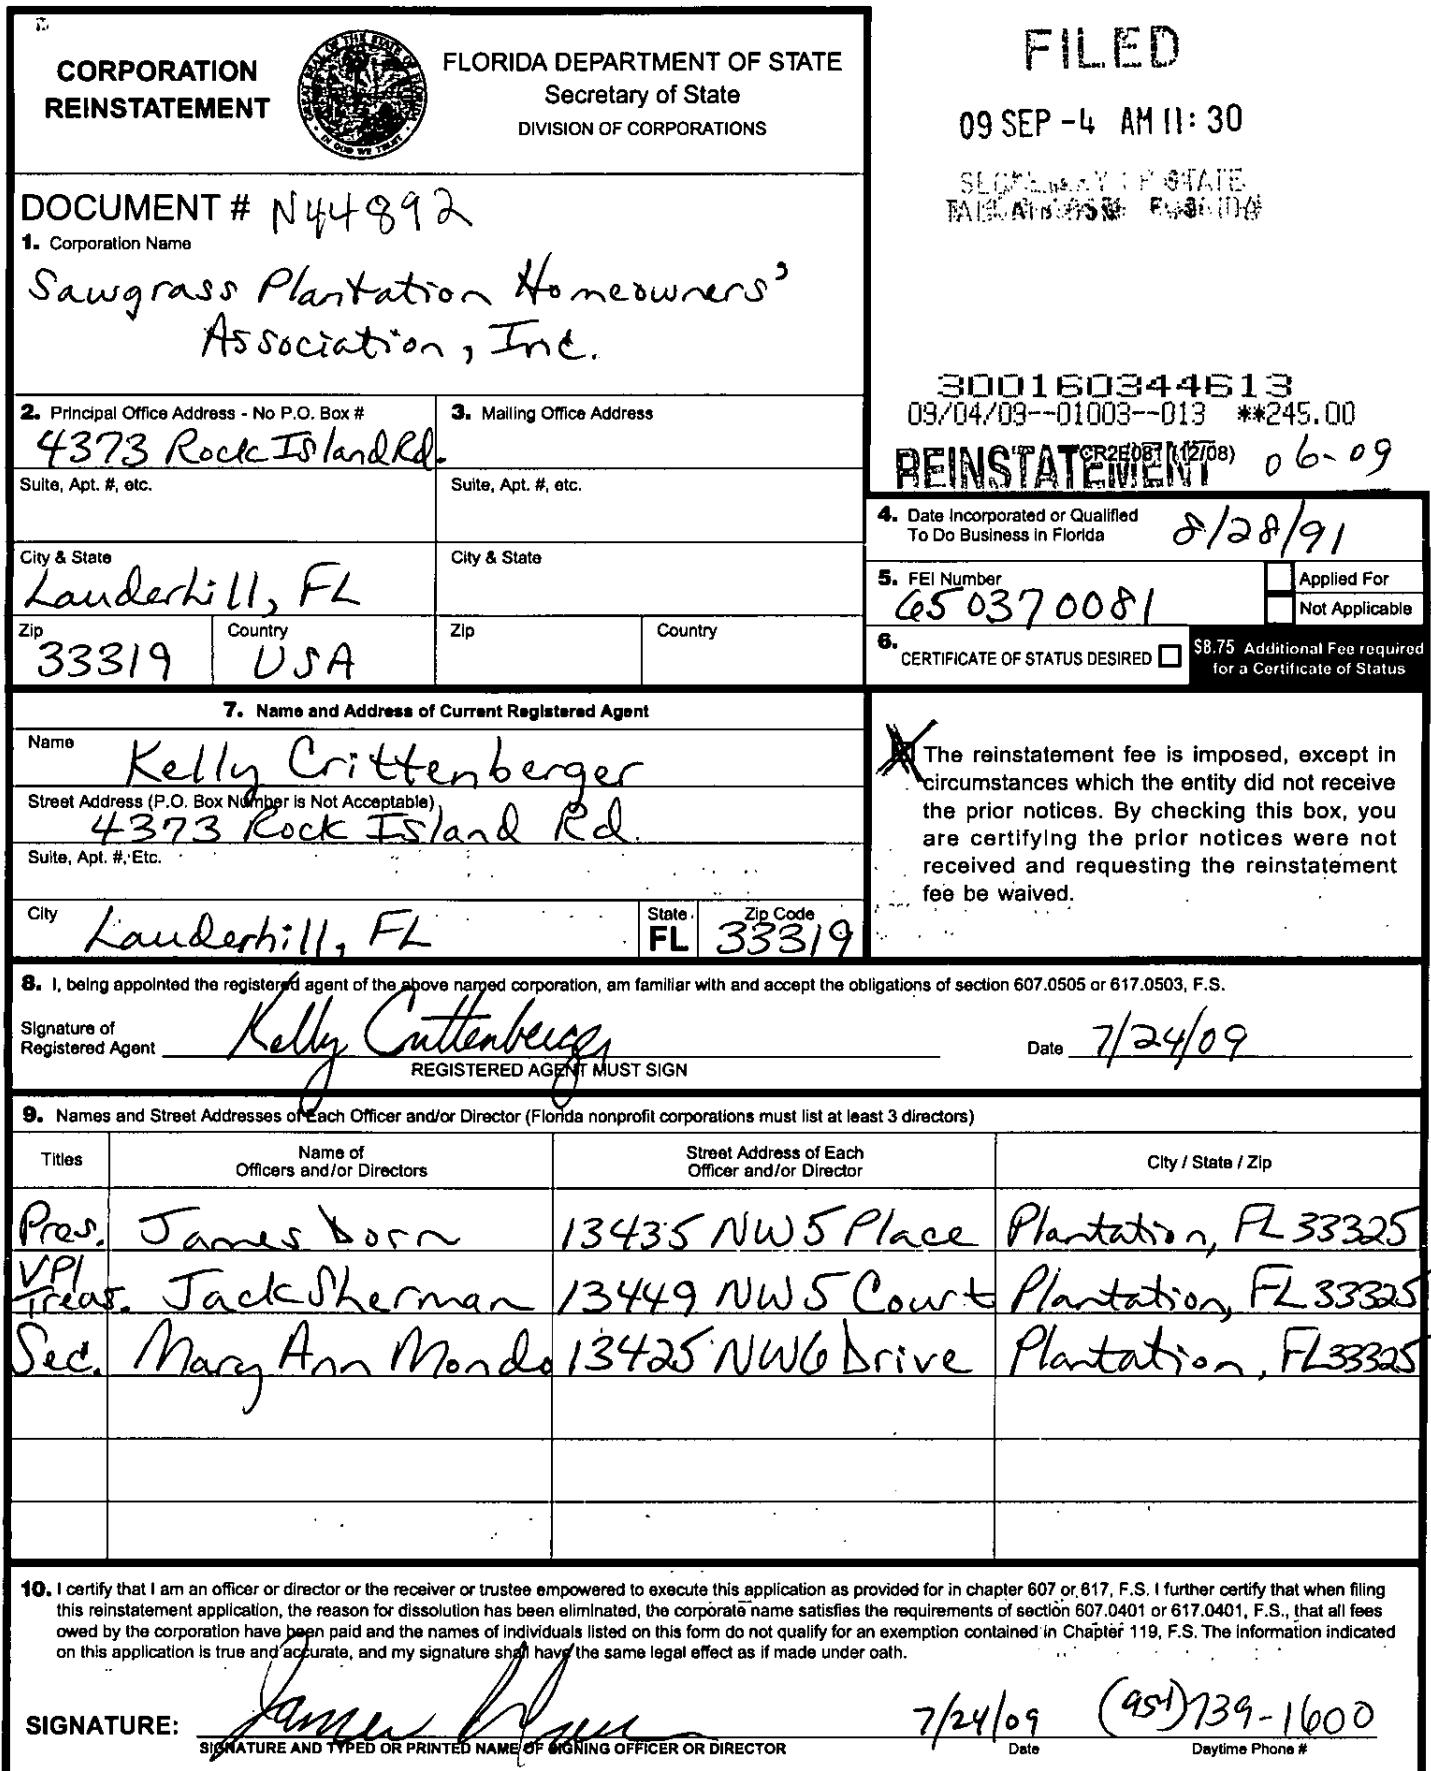 CORPORATION
REINSTATEMENT
FLORIDA DEPARTMENT OF STATE
Secretary of State
DIVISION OF CORPORATIONS
FILED
09 SEP -4 AM 11:30
SECRETARY OF STATE
TALLAHASSEE FLORIDA
DOCUMENT # N44892
1. Corporation Name
Sawgrass Plantation Homeowners'
Association, Inc.
300160344613
09/04/09--01003--013 **245.00
REINSTATEMENT CR2E081 (12/08) 06-09
2. Principal Office Address - No P.O. Box #
4373 Rock Island Rd.
3. Mailing Office Address
Suite, Apt. #, etc.
Suite, Apt. #, etc.
City & State
Lauderhill, FL
City & State
Zip
33319
Country
USA
Zip
Country
4. Date Incorporated or Qualified
To Do Business in Florida 8/28/91
5. FEI Number
650370081
Applied For
Not Applicable
6. CERTIFICATE OF STATUS DESIRED
$8.75 Additional Fee required
for a Certificate of Status
7. Name and Address of Current Registered Agent
Name
Kelly Crittenberger
Street Address (P.O. Box Number is Not Acceptable)
4373 Rock Island Rd.
Suite, Apt. #, Etc.
City
Lauderhill, FL
State
FL
Zip Code
33319
The reinstatement fee is imposed, except in
circumstances which the entity did not receive
the prior notices. By checking this box, you
are certifying the prior notices were not
received and requesting the reinstatement
fee be waived.
8. I, being appointed the registered agent of the above named corporation, am familiar with and accept the obligations of section 607.0505 or 617.0503, F.S.
Signature of
Registered Agent Kelly Crittenberger
REGISTERED AGENT MUST SIGN
Date 7/24/09
9. Names and Street Addresses of Each Officer and/or Director (Florida nonprofit corporations must list at least 3 directors)
Titles
Name of
Officers and/or Directors
Street Address of Each
Officer and/or Director
City / State / Zip
Pres. James Dorn 13435 NW 5 Place Plantation, FL 33325
VP/
Treas. Jack Sherman 13449 NW 5 Court Plantation, FL 33325
Sec. Mary Ann Mondo 13425 NW 6 Drive Plantation, FL 33325
10. I certify that I am an officer or director or the receiver or trustee empowered to execute this application as provided for in chapter 607 or 617, F.S. I further certify that when filing
this reinstatement application, the reason for dissolution has been eliminated, the corporate name satisfies the requirements of section 607.0401 or 617.0401, F.S., that all fees
owed by the corporation have been paid and the names of individuals listed on this form do not qualify for an exemption contained in Chapter 119, F.S. The information indicated
on this application is true and accurate, and my signature shall have the same legal effect as if made under oath.
SIGNATURE: James
SIGNATURE AND TYPED OR PRINTED NAME OF SIGNING OFFICER OR DIRECTOR
7/24/09
Date
(954)739-1600
Daytime Phone #